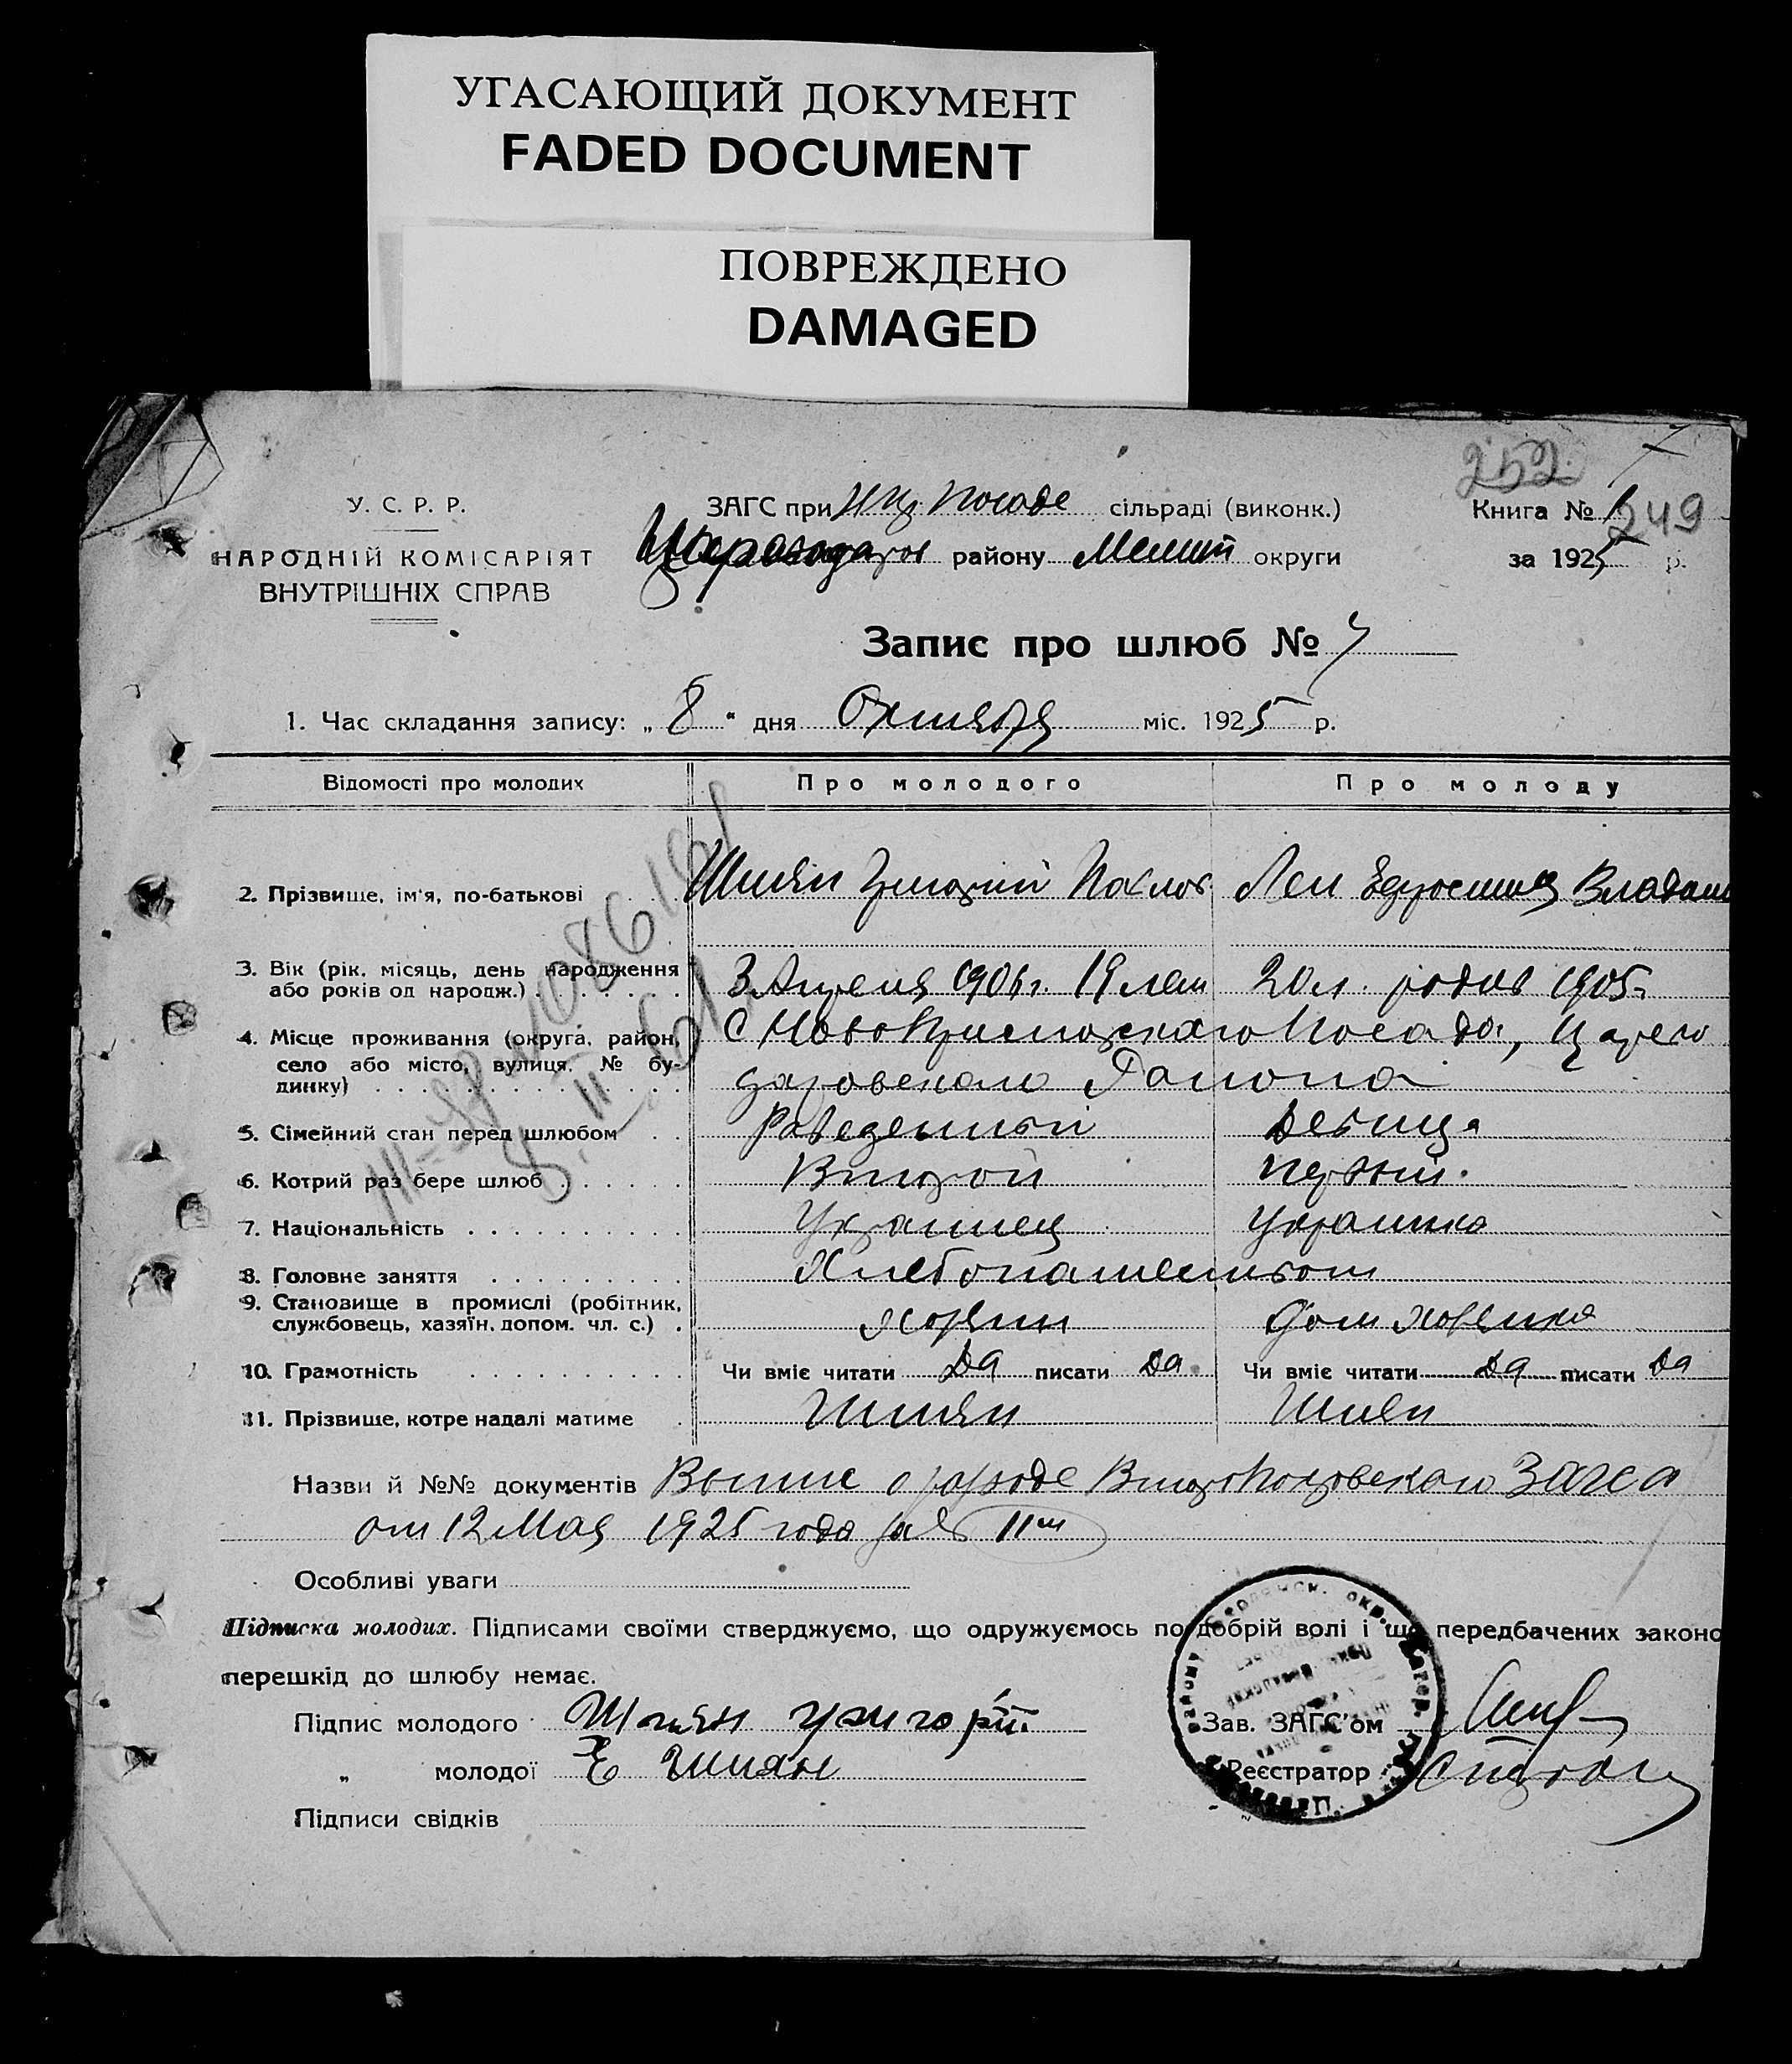 УГАСАЮЩИЙ ДОКУМЕНТ
FADED DOCUMENT
ПОВРЕЖДЕНО
DAMAGED
252
249
У. С. Р. Р.
НАРОДНІЙ КОМІСАРІЯТ
ВНУТРІШНІХ СПРАВ
ЗАГС при Н Кр Посаде сільраді (виконк.)
району Мелит округи
Книга № 1
за 1925 р.
Запис про шлюб № 7
1. Час складання запису: „ 8 “ дня Октября міс. 1925 р.
Відомості про молодих Про молодого Про молоду
2. Прізвище, ім'я, по-батькові Шиян Григорий Павлов Лен Ефросиня Владим
3. Вік (рік, місяць, день народження або років од народж.) 3 Апреля 1906 г. 19 лет 20 л. родив 1905 г.
4. Місце проживання (округа, район, село або місто, вулиця, № будинку) С Ново Григорьевского Посада, Царево
даровского Района
5. Сімейний стан перед шлюбом Разведенный Девица
6. Котрий раз бере шлюб Второй первый.
7. Національність Украинец Украинка
8. Головне заняття Хлебопашеством
9. Становище в промислі (робітник, службовець, хазяїн, допом. чл. с.) Хозяин Дом хозяйка
10. Грамотність Чи вміє читати Да писати Да Чи вміє читати Да писати Да
11. Прізвище, котре надалі матиме Шиян Шиян
Назви й №№ документів Выпис о Загса
от 12 Мая 1925 года за № 11
Особливі уваги
Підписка молодих. Підписами своїми стверджуємо, що одружуємось по добрій волі і що передбачених законо
перешкід до шлюбу немає.
Підпис молодого Шиян Григорій
„ молодої Е Шиян
Підписи свідків
Зав. ЗАГС'ом
Реєстратор